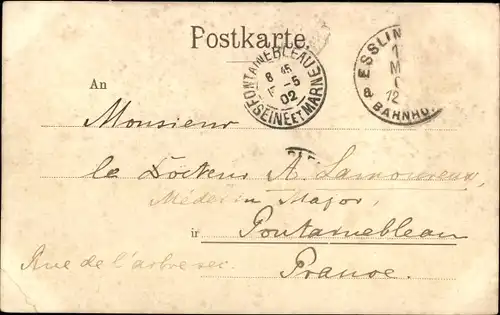 Postkarte.
FONTAINEBLEAU
8 45
-5
02
SEINE ET MARNE
ESSLIN
1
M
12
BAHNHO
An
Monsieur
le Docteur A. Lamoureux,
Médecin Major,
ir Fontainebleau
Rue de l'arbre sec.
France.